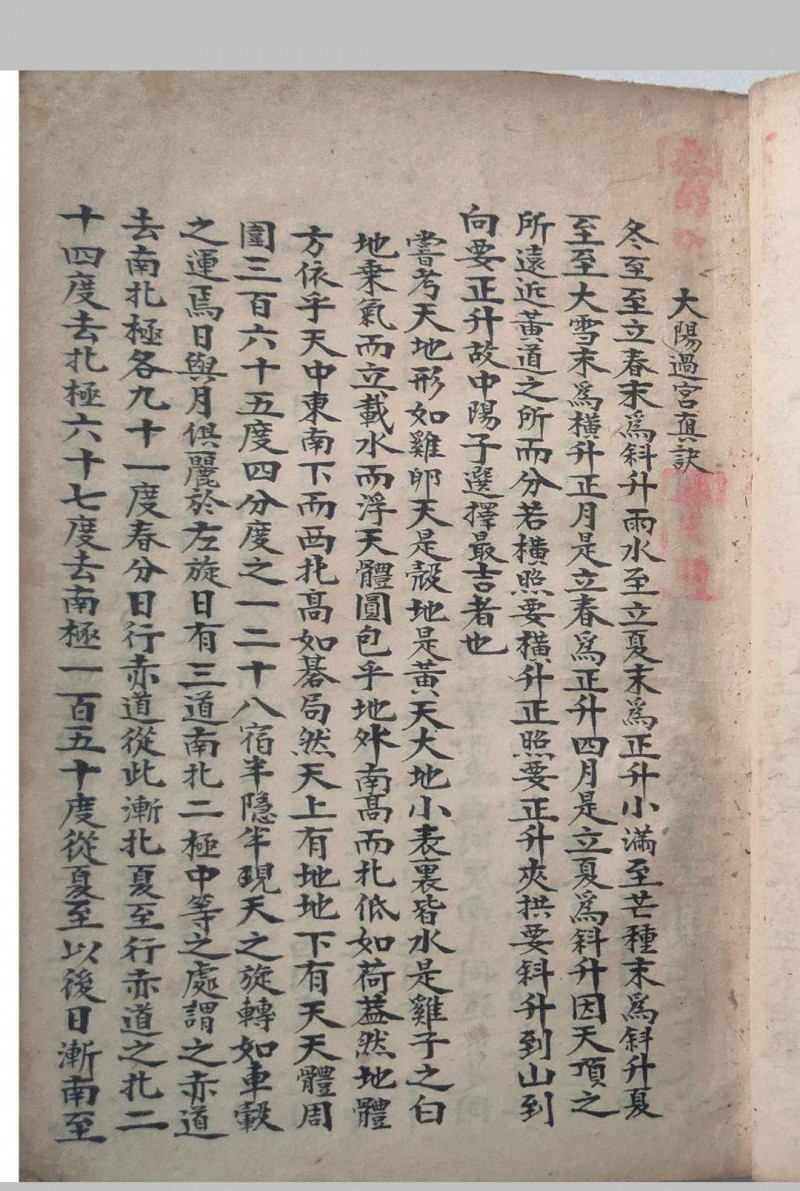 大陽過宮真訣
冬至至立春末為斜升雨水至立夏末為正升小滿至芒種末為斜升夏
至至大雪末為橫升正月是立春為正升四月是立夏為斜升因天頂之
所遠近黃道之所而分若橫照要橫升正照要正升夾拱要斜升到山到
向要正升故中陽子選擇最吉者也
嘗考天地形如雞卵天是殼地是黃天大地小表裏皆水是雞子之白
地乗氣而立載水而浮天體圓包乎地外南高而北低如荷蓋然地體
方依乎天中東南下而西北高如碁局然天上有地地下有天天體周
圍三百六十五度四分度之一二十八宿半隱半現天之旋轉如車轂
之運焉日與月俱麗於左旋日有三道南北二極中等之處謂之赤道
去南北極各九十一度春分日行赤道從此漸北夏至行赤道之北二
十四度去北極六十七度去南極一百五十度從夏至以後日漸南至